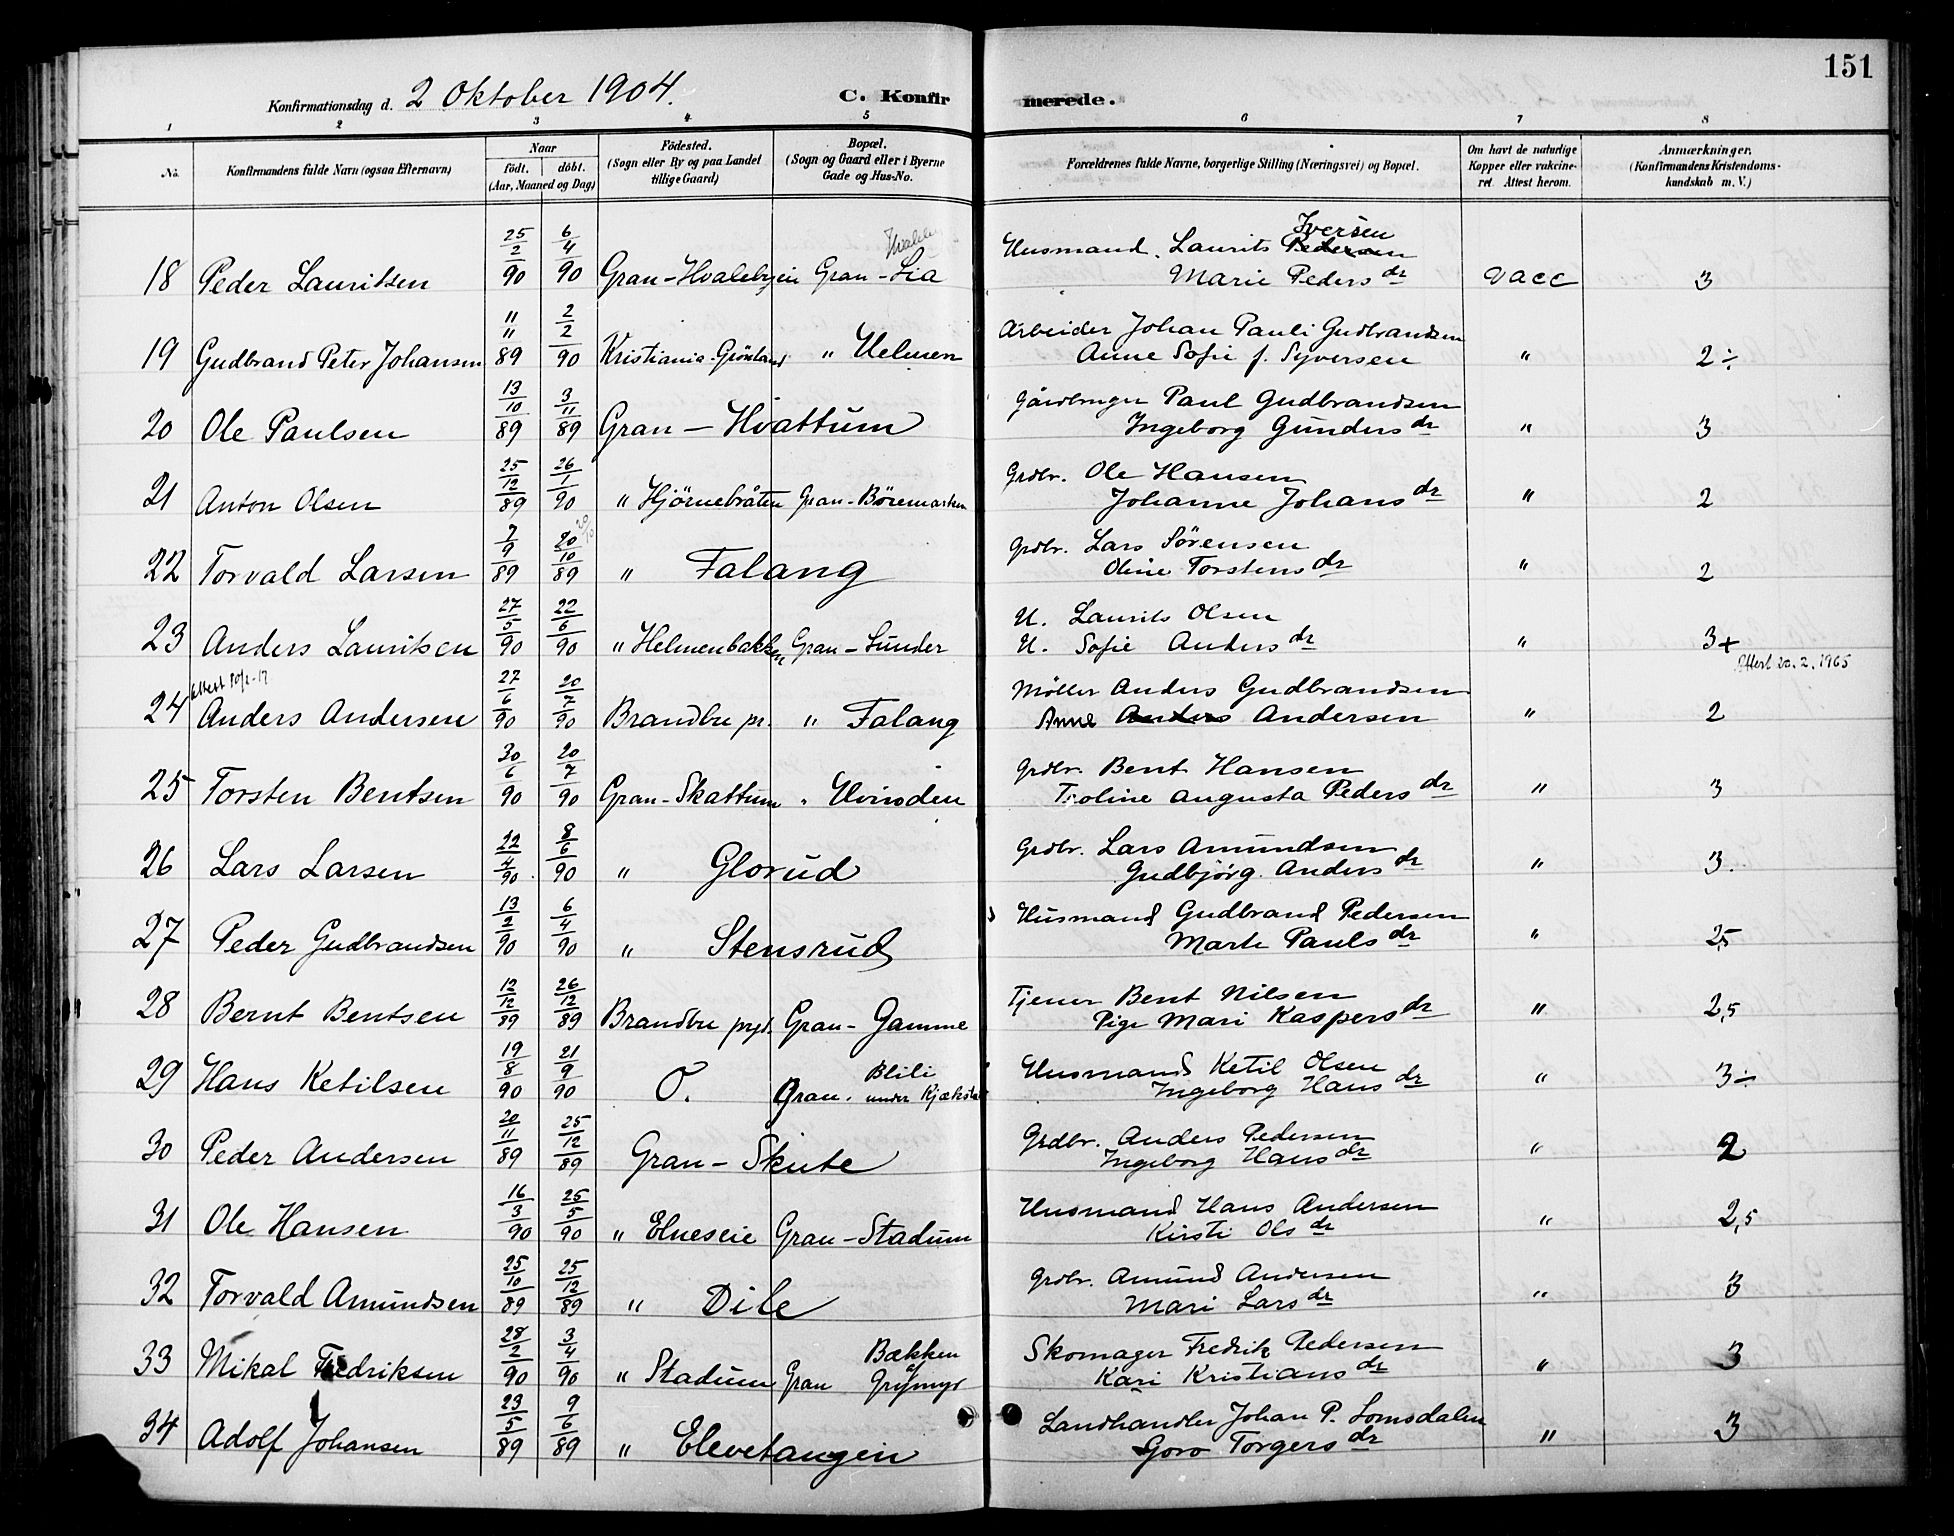 151
Konfirmationsdag d. 2 Oktober 1904. C. Konfirmerede.
1 2 3 4 5 6 7 8
No. Konfirmandens fulde Navn (ogsaa Efternavn) Naar født. døbt. (Aar, Maaned og Dag) Fødested. (Sogn eller By og paa Landet tillige Gaard) Bopæl. (Sogn og Gaard eller i Byerne Gade og Hus-No. Forældrenes fulde Navne, borgerlige Stilling (Næringsvei) og Bopæl. Om havt de naturlige Kopper eller vakcineret. Attest herom. Anmærkninger. (Konfirmandens Kristendomskundskab m. V.)
18 Peder Lauritsen 25/2 90 6/4 90 Gran - Hvalebyein Gran - Lia Husmand. Laurits Pedersen Iversen
Marie Peders dr vacc 3
19 Gudbrand Peter Johansen 11/11 89 2/2 90 Kristiania - Grønland " Helmen Arbeider Johan Pauli Gudbrandsen
Anne Sofie f. Syversen " 2 ÷
20 Ole Paulsen 13/10 89 3/11 89 Gran - Hvattum Gårdbruger Paul Gudbrandsen
Ingeborg Gunders dr " 3
21 Anton Olsen 25/12 89 26/1 90 " Hjørnebråten Gran - Børemarken Grdbr. Ole Hansen
Johanne Johans dr " 2
22 Torvald Larsen 7/9 89 20/10 89 " Falang Grdbr. Lars Sørensen
Oline Torstens dr " 2
23 Anders Lauritsen 27/5 90 22/6 90 " Helmenbakken Gran - Sunder U. Laurits Olsen
U. Sofie Anders dr " 3+
Attest 20.2.1965
24 Anders Andersen 27/6 90 20/7 90 Brandbu pr. " Falang Møller Anders Gudbrandsen
Anne Anders Andersen " 2
25 Torsten Bentsen 30/6 90 20/7 90 Gran - Skattum " Hvinden Grdbr. Bent Hansen
Troline Augusta Peders dr " 3
26 Lars Larsen 22/4 90 8/6 90 " Glorud Grdbr. Lars Amundsen
Gudbjørg Anders dr " 3.
27 Peder Gudbrandsen 13/2 90 6/4 90 " Stensrud Husmand Gudbrand Pedersen
Marte Pauls dr " 2,5
28 Bernt Bentsen 12/12 89 26/12 89 Brandbu prgd. Gran - Gamme Tjener Bent Nilsen
Pige Mari Kaspers dr " 2,5
29 Hans Ketilsen 19/8 90 21/9 90 O. Gran. Blili under Kjækstad Husmand Ketil Olsen
Ingeborg Hans dr " 3 ÷
30 Peder Andersen 20/11 89 25/12 89 Gran - Skute Grdbr. Anders Pedersen
Ingeborg Hans dr " 2
31 Ole Hansen 16/3 90 25/5 90 " Elneseie Gran - Stadum Husmand Hans Andersen
Kirsti Ols dr " 2,5
32 Torvald Amundsen 25/10 89 25/12 89 " Dile Grdbr. Amund Andersen
Mari Lars dr " 3
33 Mikal Fredriksen 28/2 90 3/4 90 " Stadum Gran Bækken Grymyr Skomager Fredrik Pedersen
Kari Kristians dr " 3
34 Adolf Johansen 23/5 89 9/6 89 " Elevetangen Landhandler Johan P. Lomsdalen
Goro Torgers dr " 3